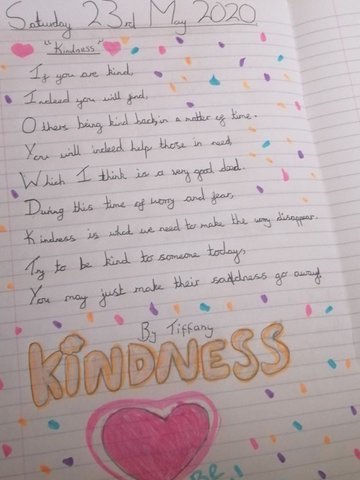 Saturday 23rd May 2020
"Kindness"
If you are kind,
Indeed you will find,
Others being kind back, in a matter of time.
You will indeed help those in need,
Which I think is a very good deed.
During this time of worry and fear,
Kindness is what we need to make the worry disappear.
Try to be kind to someone today,
You may just make their saddness go away!
By Tiffany
KiNDNESS
BE